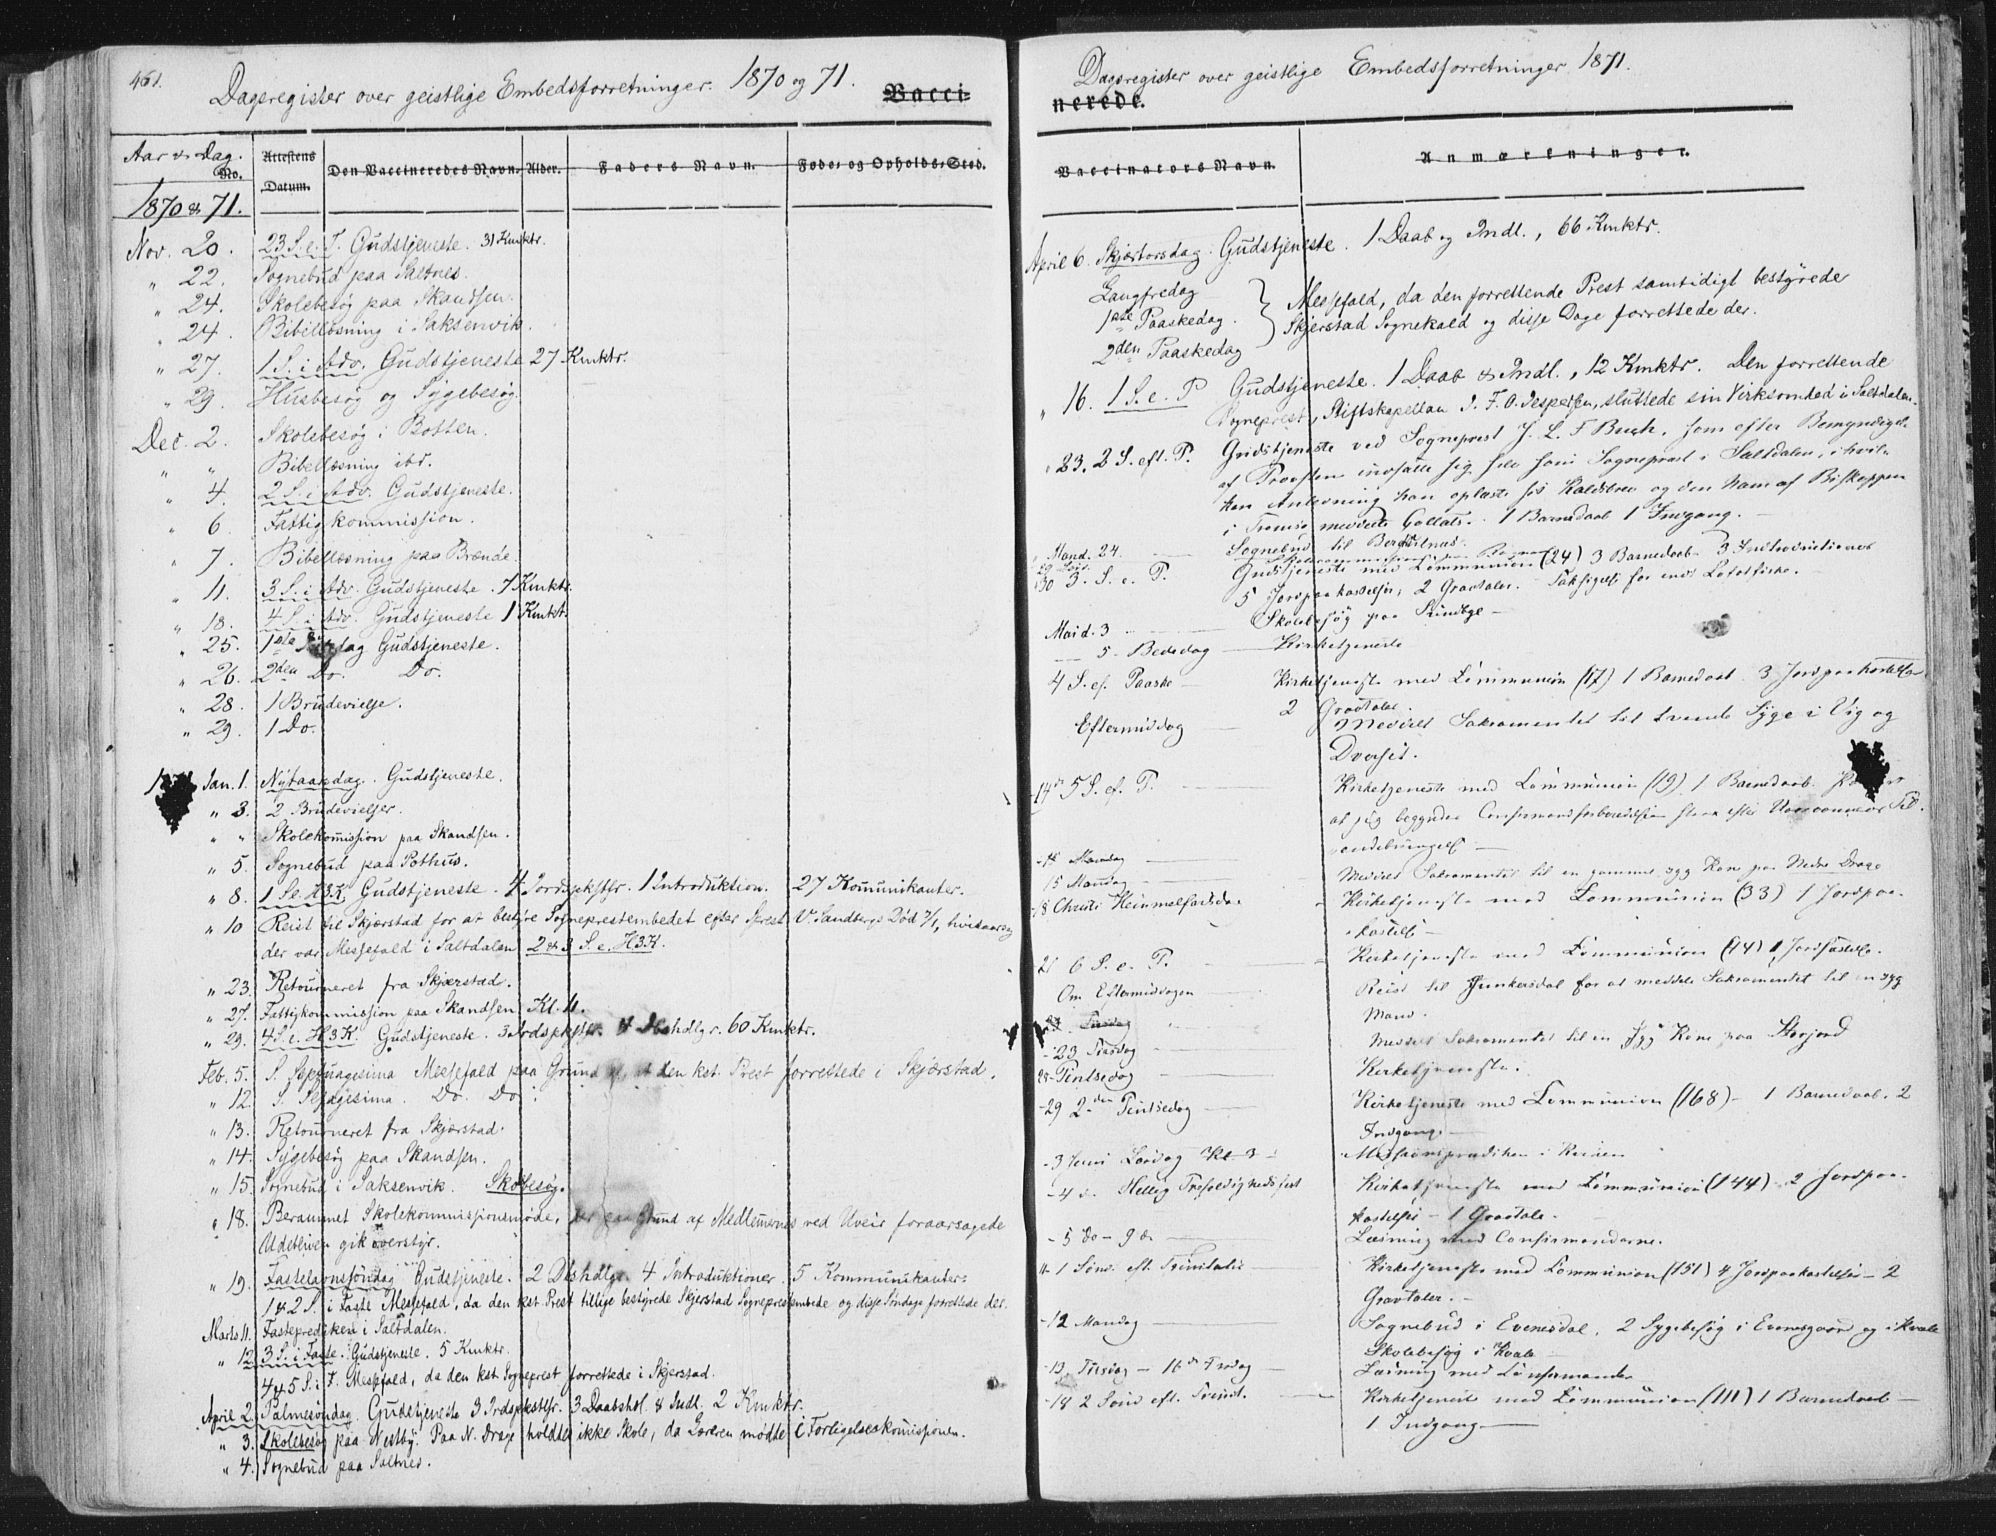 461.
Dagsregister over geistlige Embedsforretninger. 1870 og 71.
Vacci-
Aar & Dag.
No.
Attestens Datum.
Den Vaccineredes Navn.
Alder.
Faders Navn.
Føde- og Opholds-Sted.
1870 & 71.
Nov. 20. 23 S. e. T. Gudstjeneste. 31 Kmktr.
" 22. Sognebud paa Saltnes.
" 24. Skolebesøg paa Skandsen.
" 24. Bibellæsning i Saksenvik.
" 27. 1 S. i Adv. Gudstjeneste 27 Kmktr.
" 29. Husbesøg og Sygebesøg.
Dec. 2. Skolebesøg i Botten.
" " Bibellæsning ibd.
" 4. 2 S. i Adv. Gudstjeneste.
" 6. Fattigkommission.
" 7. Bibellæsning paa Brænde.
" 11. 3 S. i Adv. Gudstjeneste. 7 Kmktr.
" 18. 4 S. i Adv. Gudstjeneste 1 Kmktr.
" 25. 1ste Gudstjeneste.
" 26. 2den Do. Do.
" 28. 1 Brudevielse.
" 29. 1 Do.
Jan. 1. Nytaarsdag. Gudstjeneste.
" 3. 2 Brudevielser.
" " Skolekomission paa Skandsen.
" 5. Sognebud paa Pothus.
" 8. 1 S. e. H3K Gudstjeneste. 4 Jordspkstlsr. 1 Introduktion. 27 Komunikanter.
" 10 Reist til Skjærstad for at bestyre Sogneprestembedet efter Sprest V. Sandbergs Død 7/1, hvisaarsag
der var Messefald i Saltdalen 2 & 3 S. e. H3K.
" 23. Retourneret fra Skjærstad.
" 27. Fattigkommission paa Skandsen Kl. 11.
" 29. 4 S. e. H3K. Gudstjeneste. 3 Jordspkstlsr. Dbshdlgr. 60 Kmktr.
Feb. 5. S. Septuagesima Messefald paa Grund af at den kst. Prest forrettede i Skjærstad.
" 12. S. Sexagesima. Do. Do.
" 13. Retourneret fra Skjærstad.
" 14. Sygebesøg paa Skandsen.
" 15. Sognebud i Saksenvik. Skolebesøg.
" 18. Berammet Skolekommissionsmøde, der paa Grund af Medlemernes ved Uveir foraarsagede
Udebliven gik overstyr.
" 19. Fastelavnssøndag Gudstjeneste. 2 Dbshdlgr. 4 Introduktioner. 5 Kommunikanter.
1 & 2 S. i Faste Messefald, da den kst. Prest tillige bestyrede Skjerstad Sogneprestembede og disse Søndage forrettede der.
Marts 11. Fasteprediken i Saltdalen.
" 12. 3 S. i Faste. Gudstjeneste. 5 Kmktr.
4 & 5 S. i F. Messefald, da den kst. Sogneprest forrettede i Skjerstad.
April 2. Palmesøndag. Gudstjeneste 3 Jrdspkstlsr. 3 Daabshdl. & Indl. 2 Kmktr.
" 3. Skolebesøg paa Nestby. Paa N. Drage holdtes ikke Skole, da Læreren mødte i Forligelseskomissionen.
" 4. Sognebud paa Saltnes.
Dagsregister over geistlige Embedsforretninger 1871.
nerede.
Vaccinators Navn.
Anmærkninger.
April 6. Skjærtorsdag. Gudstjeneste. 1 Daab og Indl., 66 Kmktr.
Langfredag
1ste Paaskedag.
2den Paaskedag
Messefald, da den forrettende Prest samtidigt bestyrede
Skjerstad Sognekald og disse Dage forrettede der.
" 16. 1 S. e. P Gudstjeneste. 1 Daab & Indl., 12 Kmktr. Den forrettende
Sogneprest, Stiftskapellan J. F. O. Jespersen, sluttede sin Virksomhed i Saltdalen.
" 23. 2 S. eft. P. Gudstjeneste ved Sogneprest J. L. F Buch, som efter Bemyndigel.
af Provsten indsatte sig selv som Sogneprest i Saltdalen, i hvil-
ken Anledning han oplæste sit Kaldsbrev og den ham af Biskoppen
i Tromsø meddelte Collats. 1 Barnedaab 1 Indgang.
" Mand. 24. Sognebud til
30 3. S. e. P. Gudstjeneste med Communion (24) 3 Barnedaab. 3 Introductioner
5 Jordpaakastelser, 2 Gravtaler. Taksigelse for endt Lofotfiske.
Mai d. 3 Skolebesøg paa
5. Bededag Kirketjeneste
4 S. ef. Paaske Kirketjeneste med Communion (17) 1 Barnedaab. 3 Jordpaakastelser
2 Gravtaler.
Eftermiddag Meddelt Sakramentet til tvende Syge i Vig og
Dverset.
14de 5 S. ef. P. Kirketjeneste med Communion (19) 1 Barnedaab.
at jeg begynder Confirmandforberedelsen strax efter
Mandag
15 Mandag Meddelt Sakramentet til en gammel syg Kone paa Nedre Drage
18 Christi Himmelfartsdag Kirketjeneste med Communion (33) 1 Jordpaa-
kastelse
21 6 S. e. P. Kirketjeneste med Communion (14) 1 Jordkastelse.
Om Eftermiddagen Reist til Junkersdal for at meddele Sakramentet til en syg
Mand.
23 Tirsdag Meddelt Sakramentet til en syg Kone paa Storjord
28 Pintsedag Kirketjeneste.
29 2den Pintsedag Kirketjeneste med Communion (168) - 1 Barnedaab. 2
Indgang.
3 Juni Lørdag Kl. 3 Missionsprædiken i Kirken
4 d. Hellig Trefoldighedsfest Kirketjeneste med Communion (144) 2 Jordpaa-
kastelser - 1 Gravtale.
5 do - 9 de Læsning med Confirmanderne.
11 1 Sønd. eft Trinitatis Kirketjeneste med Communion (151) 4 Jordpaakastelser - 2
Gravtaler.
12 Mandag Sognebud i Evenesdal. 2 Sygebesøg i Evensgaard og i Kvale
Skolebesøg i Kvale
13 Tirsdag - 16de Fredag Læsning med Confirmander
18 2 Sønd eft. Trinit. Kirketjeneste med Communion (111) 1 Barnedaab
1 Indgang